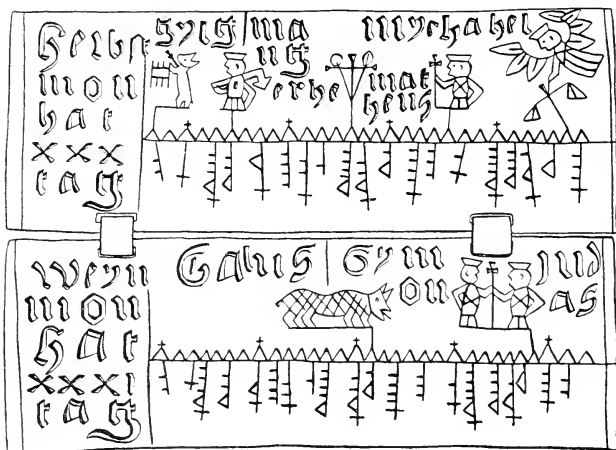 Herbst
mon
hat
xxx
tag
gylg ma
ng
erhe
mychahel
mat
heus
Weyn
mon
hat
xxxi
tag
Galus
Sym
on
Jud
as